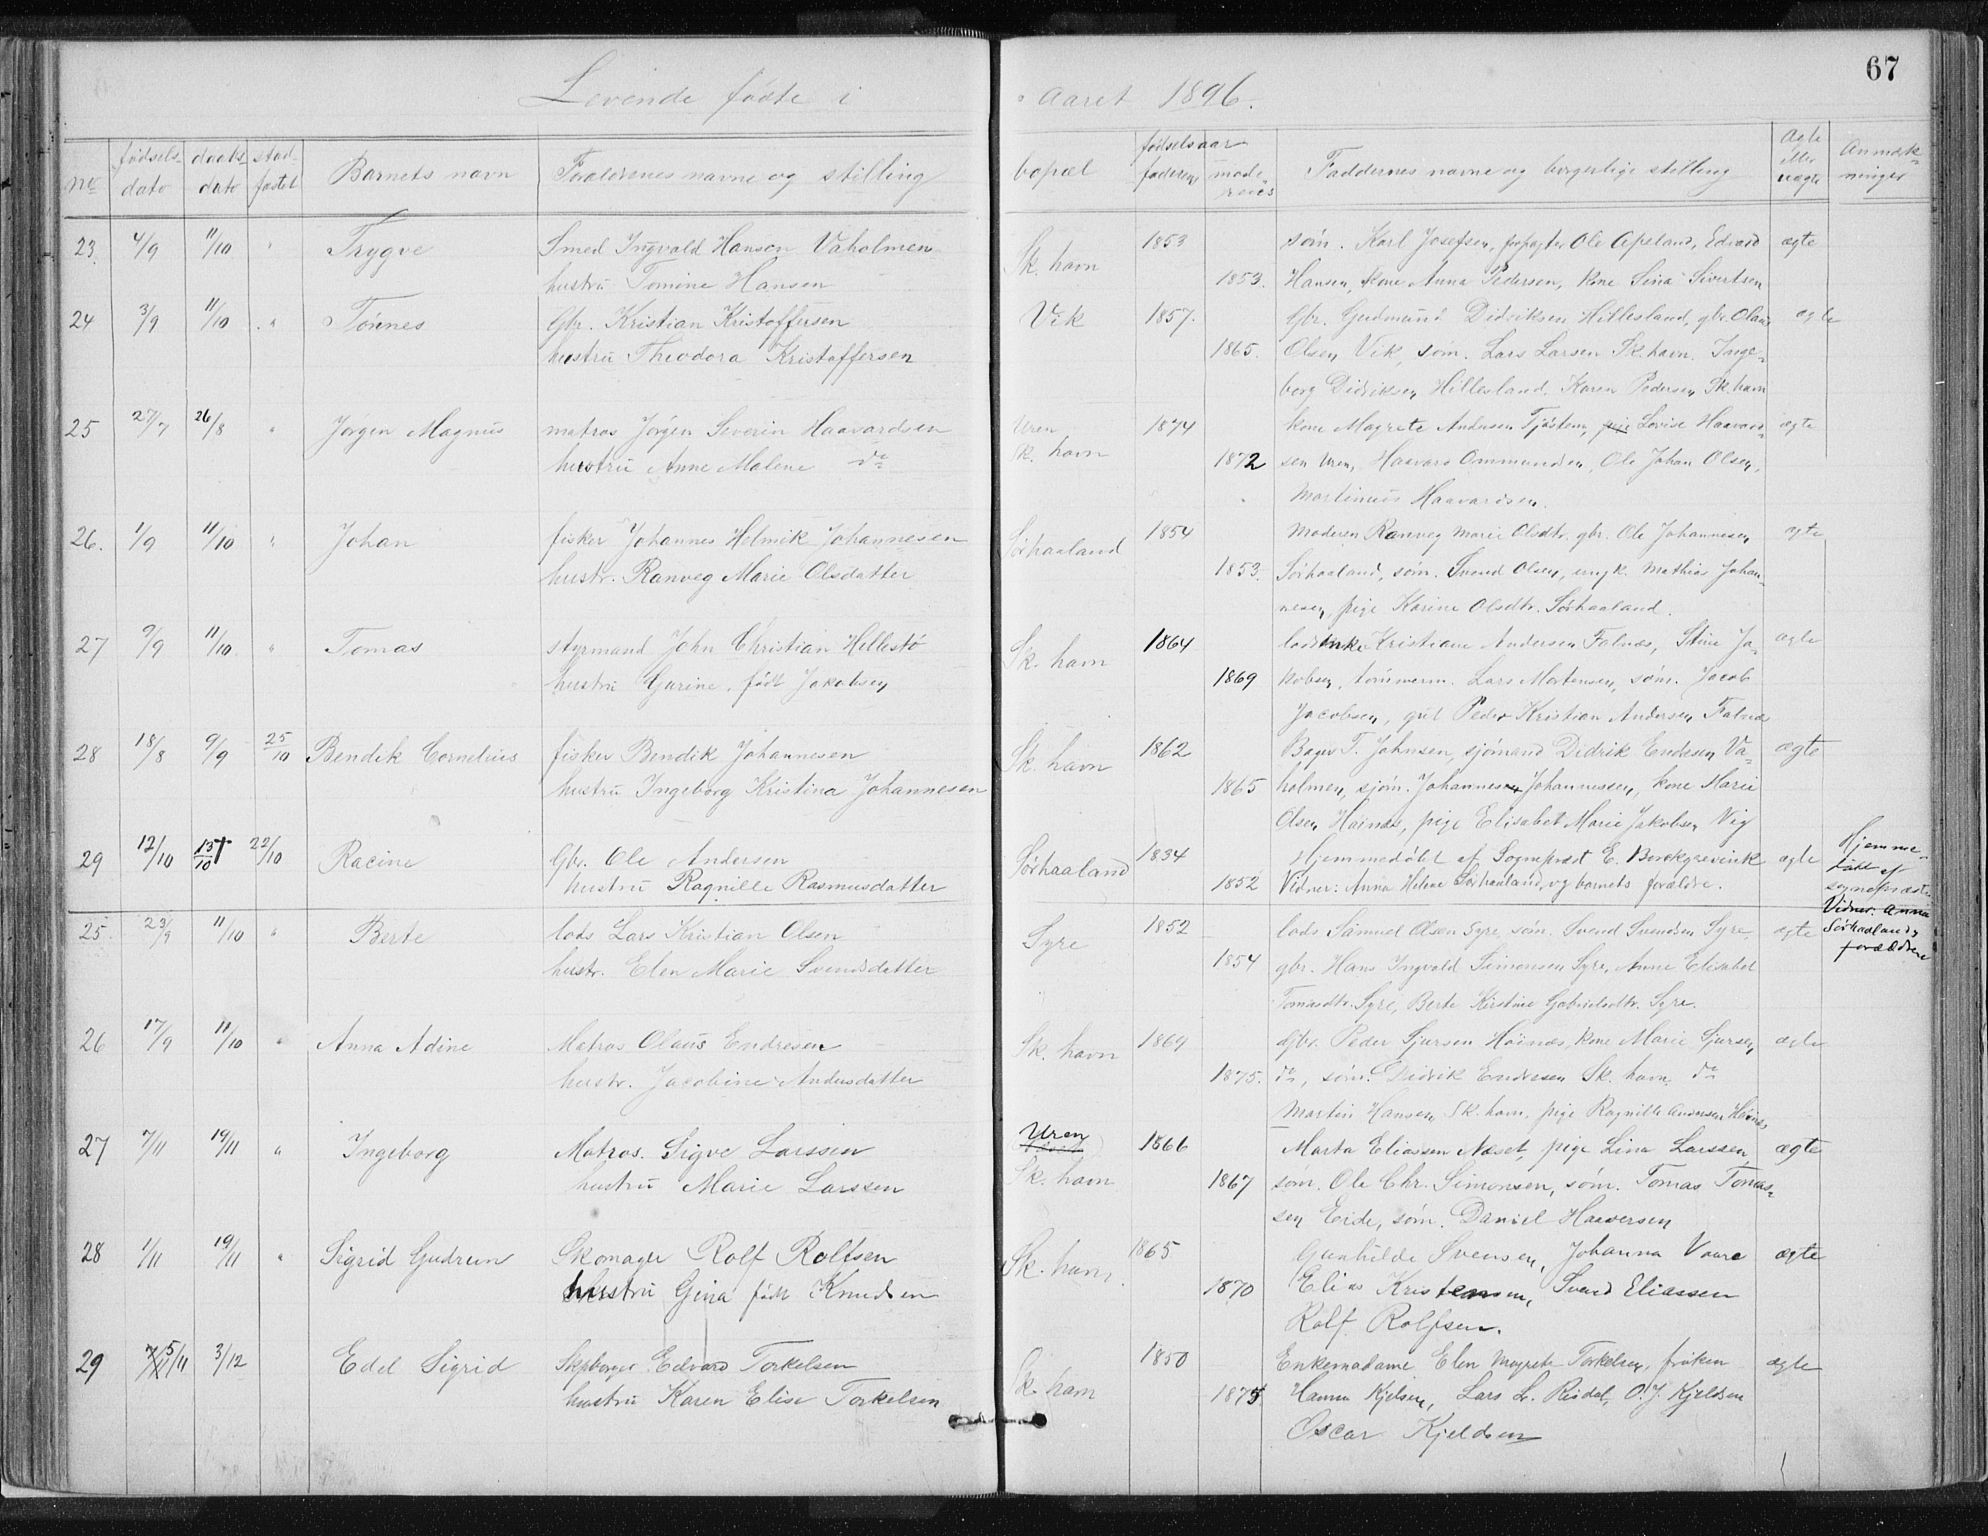 67
Levende fødte i aaret 1896.
No fødsels-dato daabs-dato stad-fæstet Barnets navn Forældrenes navne og stilling bopæl fødselsaar faderens moderens Faddernes navne og borgerlige stilling Ægte eller uægte Anmærk-ninger
23. 4/9 11/10 " Trygve Smed Ingvald Hansen Vaholmen Sk. havn 1853 søm. Karl Josefsen, forpagter Ole Apeland, Edvard ægte
hustru Tomine Hansen 1853. Hansen, kone Anna Pedersen, kone Sina Sivertsen
24 3/9 11/10 " Tønnes Gbr. Kristian Kristoffersen Vik 1857. Gbr. Gudmund Didriksen Hillesland, gbr. Olaus ægte
hustru Theodora Kristoffersen 1865. Olsen Vik, søm. Lars Larsen Sk. havn. Inge-
borg Didriksen Hillesland. Karen Pedersen Sk. havn
25 27/7 26/8 " Jørgen Magnus matros Jørgen Severin Haavardsen Uren Sk. havn 1874 kone Magrete Andersen Tjøstem, pige Lovise Haavard- ægte
hustru Anne Malene do 1872 sen Uren, Haavard Ommundsen, Ole Johan Olsen,
Martinius Haavardsen.
26. 1/9 11/10 " Johan fisker Johannes Helmik Johannesen Sørhaaland 1854 Moderen Ranveg Marie Olsdtr. gbr. Ole Johannesen ægte
hustr. Ranveg Marie Olsdatter 1853. Sørhaaland, søm. Svend Olsen, ungk. Mathias Johan-
nesen, pige Karine Olsdtr. Sørhaaland.
27 9/9 11/10 " Tomas styrmand John Christian Hillestø Sk. havn 1864 lodsenke Kristiane Andersen Falnæs, Stine Ja- ægte
hustru Gurine, født Jakobsen 1869 kobsen, tømmerm. Lars Mortensen, søm. Jacob
Jacobsen, gut Peder Kristian Andersen Falnæs
28 18/8 9/9 25/10 Bendik Cornelius fisker Bendik Johannesen Sk. havn 1862 Bager T. Johnsen, sjømand Didrik Endresen Va- ægte
hustru Ingeborg Kristina Johannesen 1865 holmen, sjøm. Johannes Johannessen, kone Marie
Olsen Høinæs, pige Elisabet Marie Jakobsen Vig
29 12/10 13/10 † 22/10 Racine Gbr. Ole Andersen Sørhaaland 1834 Hjemmedøbt af Sogneprest E. Berckgrevinck ægte Hjemme-døbt af sogneprest
hustru Ragnille Rasmusdatter 1852 Vidner: Anna Helene Sørhaaland, og barnets forældre. Vidner: Anna Sørhaaland, forældre
25. 23/9 11/10 " Berte lods Lars Kristian Olsen Syre 1852 lods Samuel Olsen Syre, søm. Svend Svendsen Syre, ægte
hustr. Elen Marie Svendsdatter 1854 gbr. Hans Ingvald Simonsen Syre, Anne Elisabet
Tomasdtr. Syre, Berte Kirstine Gabrielsdtr. Syre.
26 17/9 11/10 " Anna Adine Matros Olaus Endresen Sk. havn 1869 Gbr. Peder Sjursen Høinæs, kone Marie Sjursen, ægte
hustr. Jacobine Andersdatter 1875. do, søm. Didrik Endresen Sk. havn, do
Martin Hansen Sk. havn, pige Ragnille Andersen Høinæs
27 7/11 19/11 " Ingeborg Matros. Sigve Larssen Uren Sk. havn 1866 Marta Eliassen Næset, pige Lina Larssen ægte
hustru Marie Larssen 1867 søm. Ole Chr. Simonsen, søm. Tomas Tomas-
sen Eide, søm. Daniel Haaversen
28 1/11 19/11 " Sigrid Gudrun Skomager Rolf Rolfsen Sk. havn. 1865 Gunhilde Svensen, Johanna Vaare ægte
hustru Gina født Knudsen 1870 Elias Kristensen, Svend Eliassen
Rolf Rolfsen.
29 5/11 3/12 Edel Sigrid Skpbygger Edvard Torkelsen Sk. havn 1850 Enkemadame Elen Magrete Torkelsen, frøken ægte
hustru Karen Elise Torkelsen 1875 Hanna Kjelsen, Lars L. Risdal, O. J. Kjeldsen
Oscar Kjeldsen